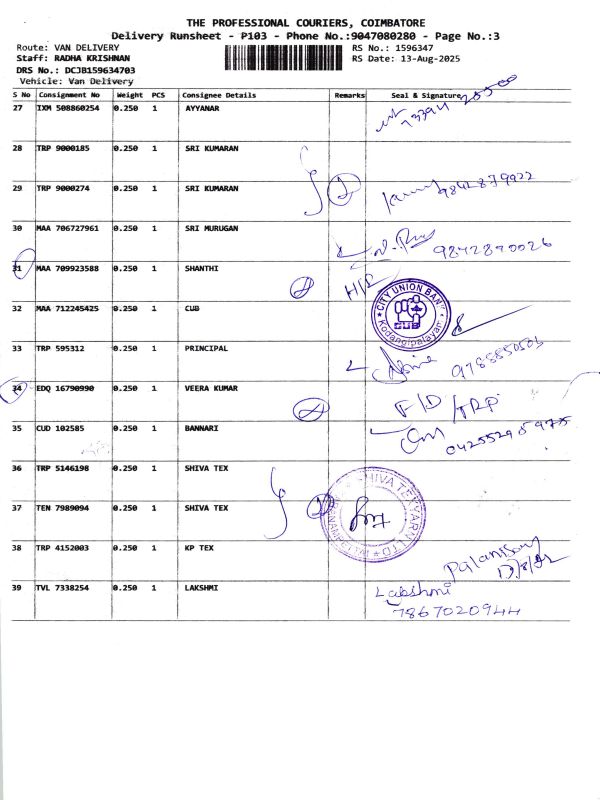 THE PROFESSIONAL COURIERS, COIMBATORE
Delivery Runsheet - P103 - Phone No.:9047080280 - Page No.:3
Route: VAN DELIVERY RS No.: 1596347
Staff: RADHA KRISHNAN RS Date: 13-Aug-2025
DRS No.: DCJB159634703
Vehicle: Van Delivery
S No Consignment No Weight PCS Consignee Details Remarks Seal & Signature
27 IXM 508860254 0.250 1 AYYANAR
28 TRP 9000185 0.250 1 SRI KUMARAN
29 TRP 9000274 0.250 1 SRI KUMARAN 2 9842879922
30 MAA 706727961 0.250 1 SRI MURUGAN 9842890026
31 MAA 709923588 0.250 1 SHANTHI
32 MAA 712245425 0.250 1 CUB CITY UNION BANK CUB Kodangipalayam
33 TRP 595312 0.250 1 PRINCIPAL 9788850505
34 EDQ 16790990 0.250 1 VEERA KUMAR F/D /TRP
35 CUD 102585 0.250 1 BANNARI
36 TRP 5146198 0.250 1 SHIVA TEX
37 TEN 7989094 0.250 1 SHIVA TEX 2 SHIVA TEXYARN LTD
38 TRP 4152003 0.250 1 KP TEX Palanisamy
39 TVL 7338254 0.250 1 LAKSHMI Lakshmi
7867020944